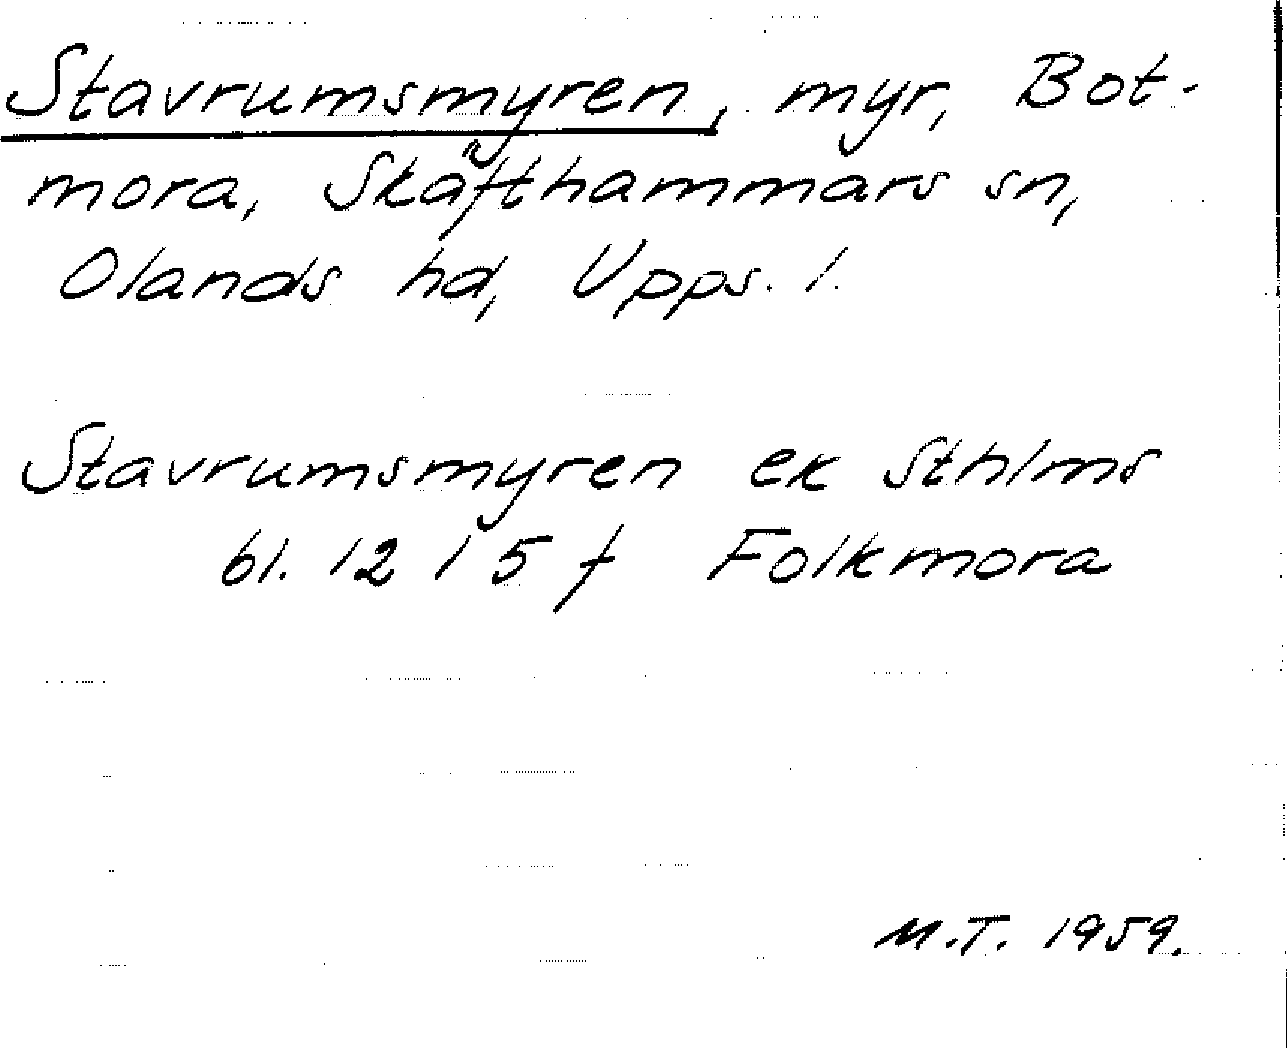 Stavrumsmyren, myr, Bot-
mora, Skäfthammars sn,
Olands hd, Upps. l.
Stavrumsmyren ek Sthlms
bl. 12 I 5 f Folkmora
M.T. 1959.